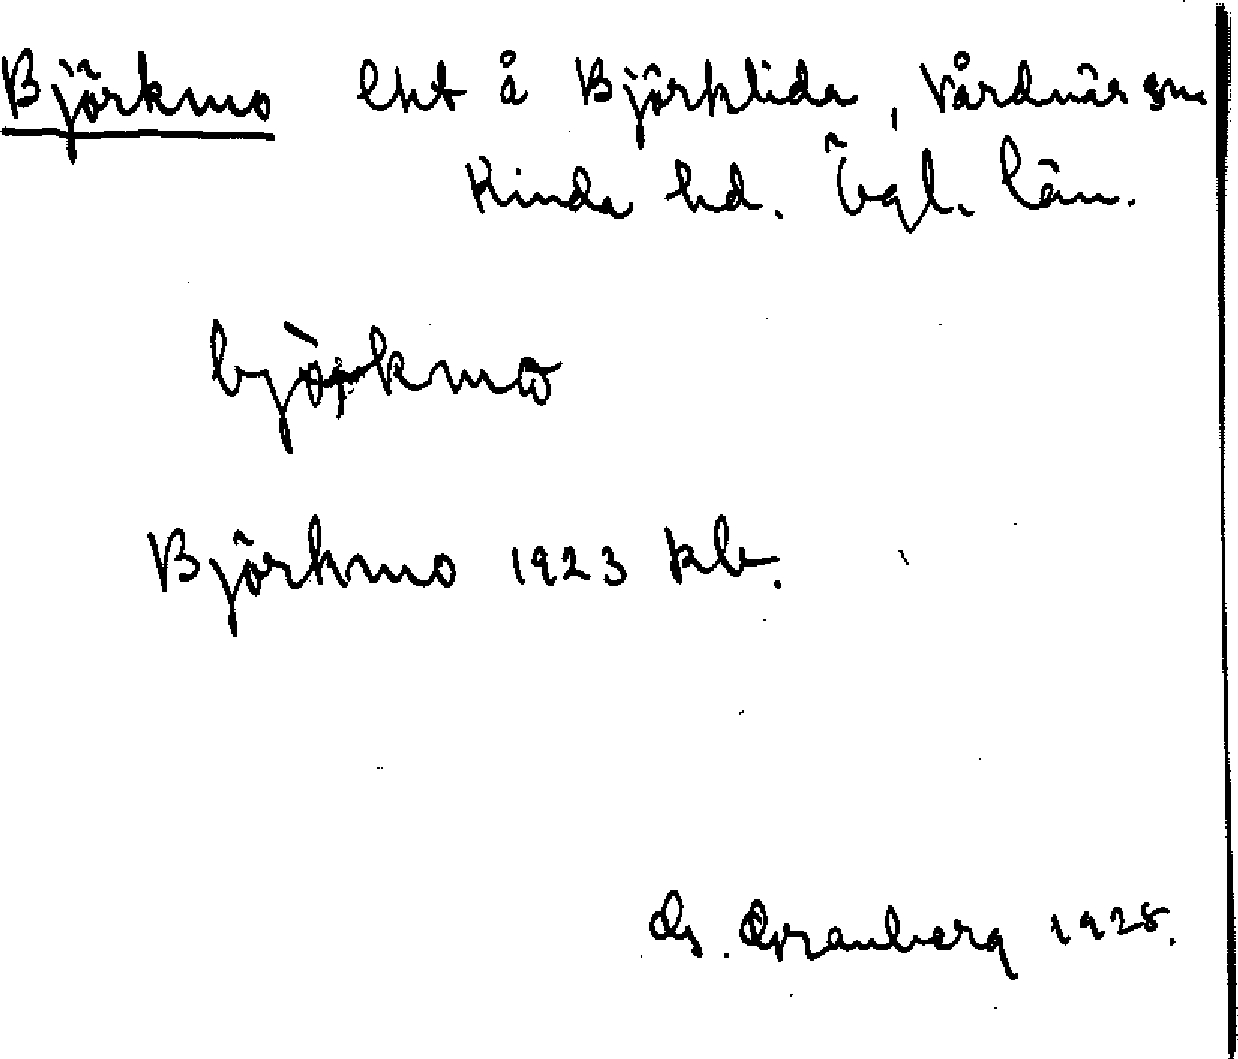 Björkmo lht å Björklida, Vårdnäs sn.
Kinda hd. Ögl. län.
bjòrkmo
Björkmo 1923 kb.
G. Granberg 1928.